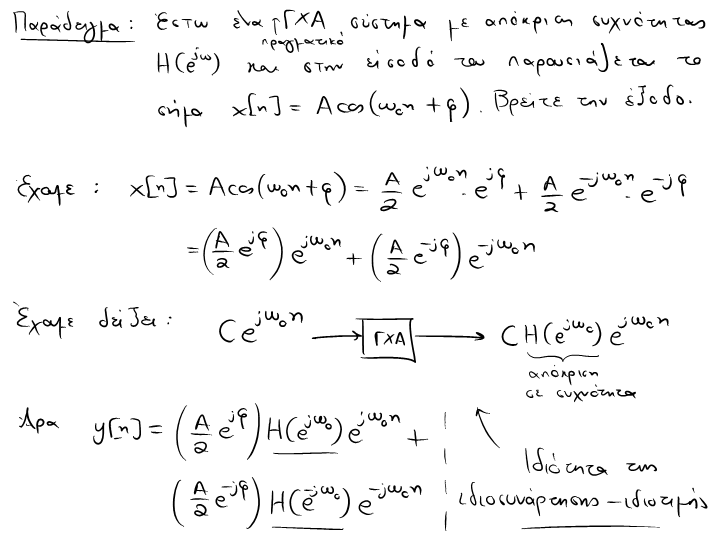 Παράδειγμα: Έστω ένα πραγματικό ΓΧΑ σύστημα με απόκριση συχνότητας
H(e^{jω}) και στην είσοδό του παρουσιάζεται το
σήμα x[n] = Acos(ω₀n + φ). Βρείτε την έξοδο.
Έχουμε: x[n] = Acos(ω₀n+φ) = A/2 e^{jω₀n} · e^{jφ} + A/2 e^{-jω₀n} · e^{-jφ}
= (A/2 e^{jφ}) e^{jω₀n} + (A/2 e^{-jφ}) e^{-jω₀n}
Έχουμε δείξει: Ce^{jω₀n} → ΓΧΑ → CH(e^{jω₀}) e^{jω₀n}
απόκριση
σε συχνότητα
Άρα y[n] = (A/2 e^{jφ}) H(e^{jω₀}) e^{jω₀n} +
(A/2 e^{-jφ}) H(e^{-jω₀}) e^{-jω₀n}
Ιδιότητα της
ιδιοσυνάρτησης – ιδιοτιμής